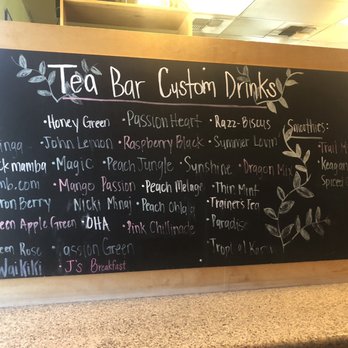 Tea Bar Custom Drinks
• Honey Green • Passion Heart • Razz-Biscus Smoothies:
• John Lemon • Raspberry Black • Summer Lovin' • Trail M
ck mamba • Magic • Peach Jungle • Sunshine • Dragon Mix Keagan
mb.com • Mango Passion • Peach Melange • Thin Mint Spiced
ron Berry • Nicki Minaj • Peach Ohlala • Trainers Tea
een Apple Green • OHA • Pink Chillinade • Paradise
een Rose • Passion Green
Waikiki • J's Breakfast